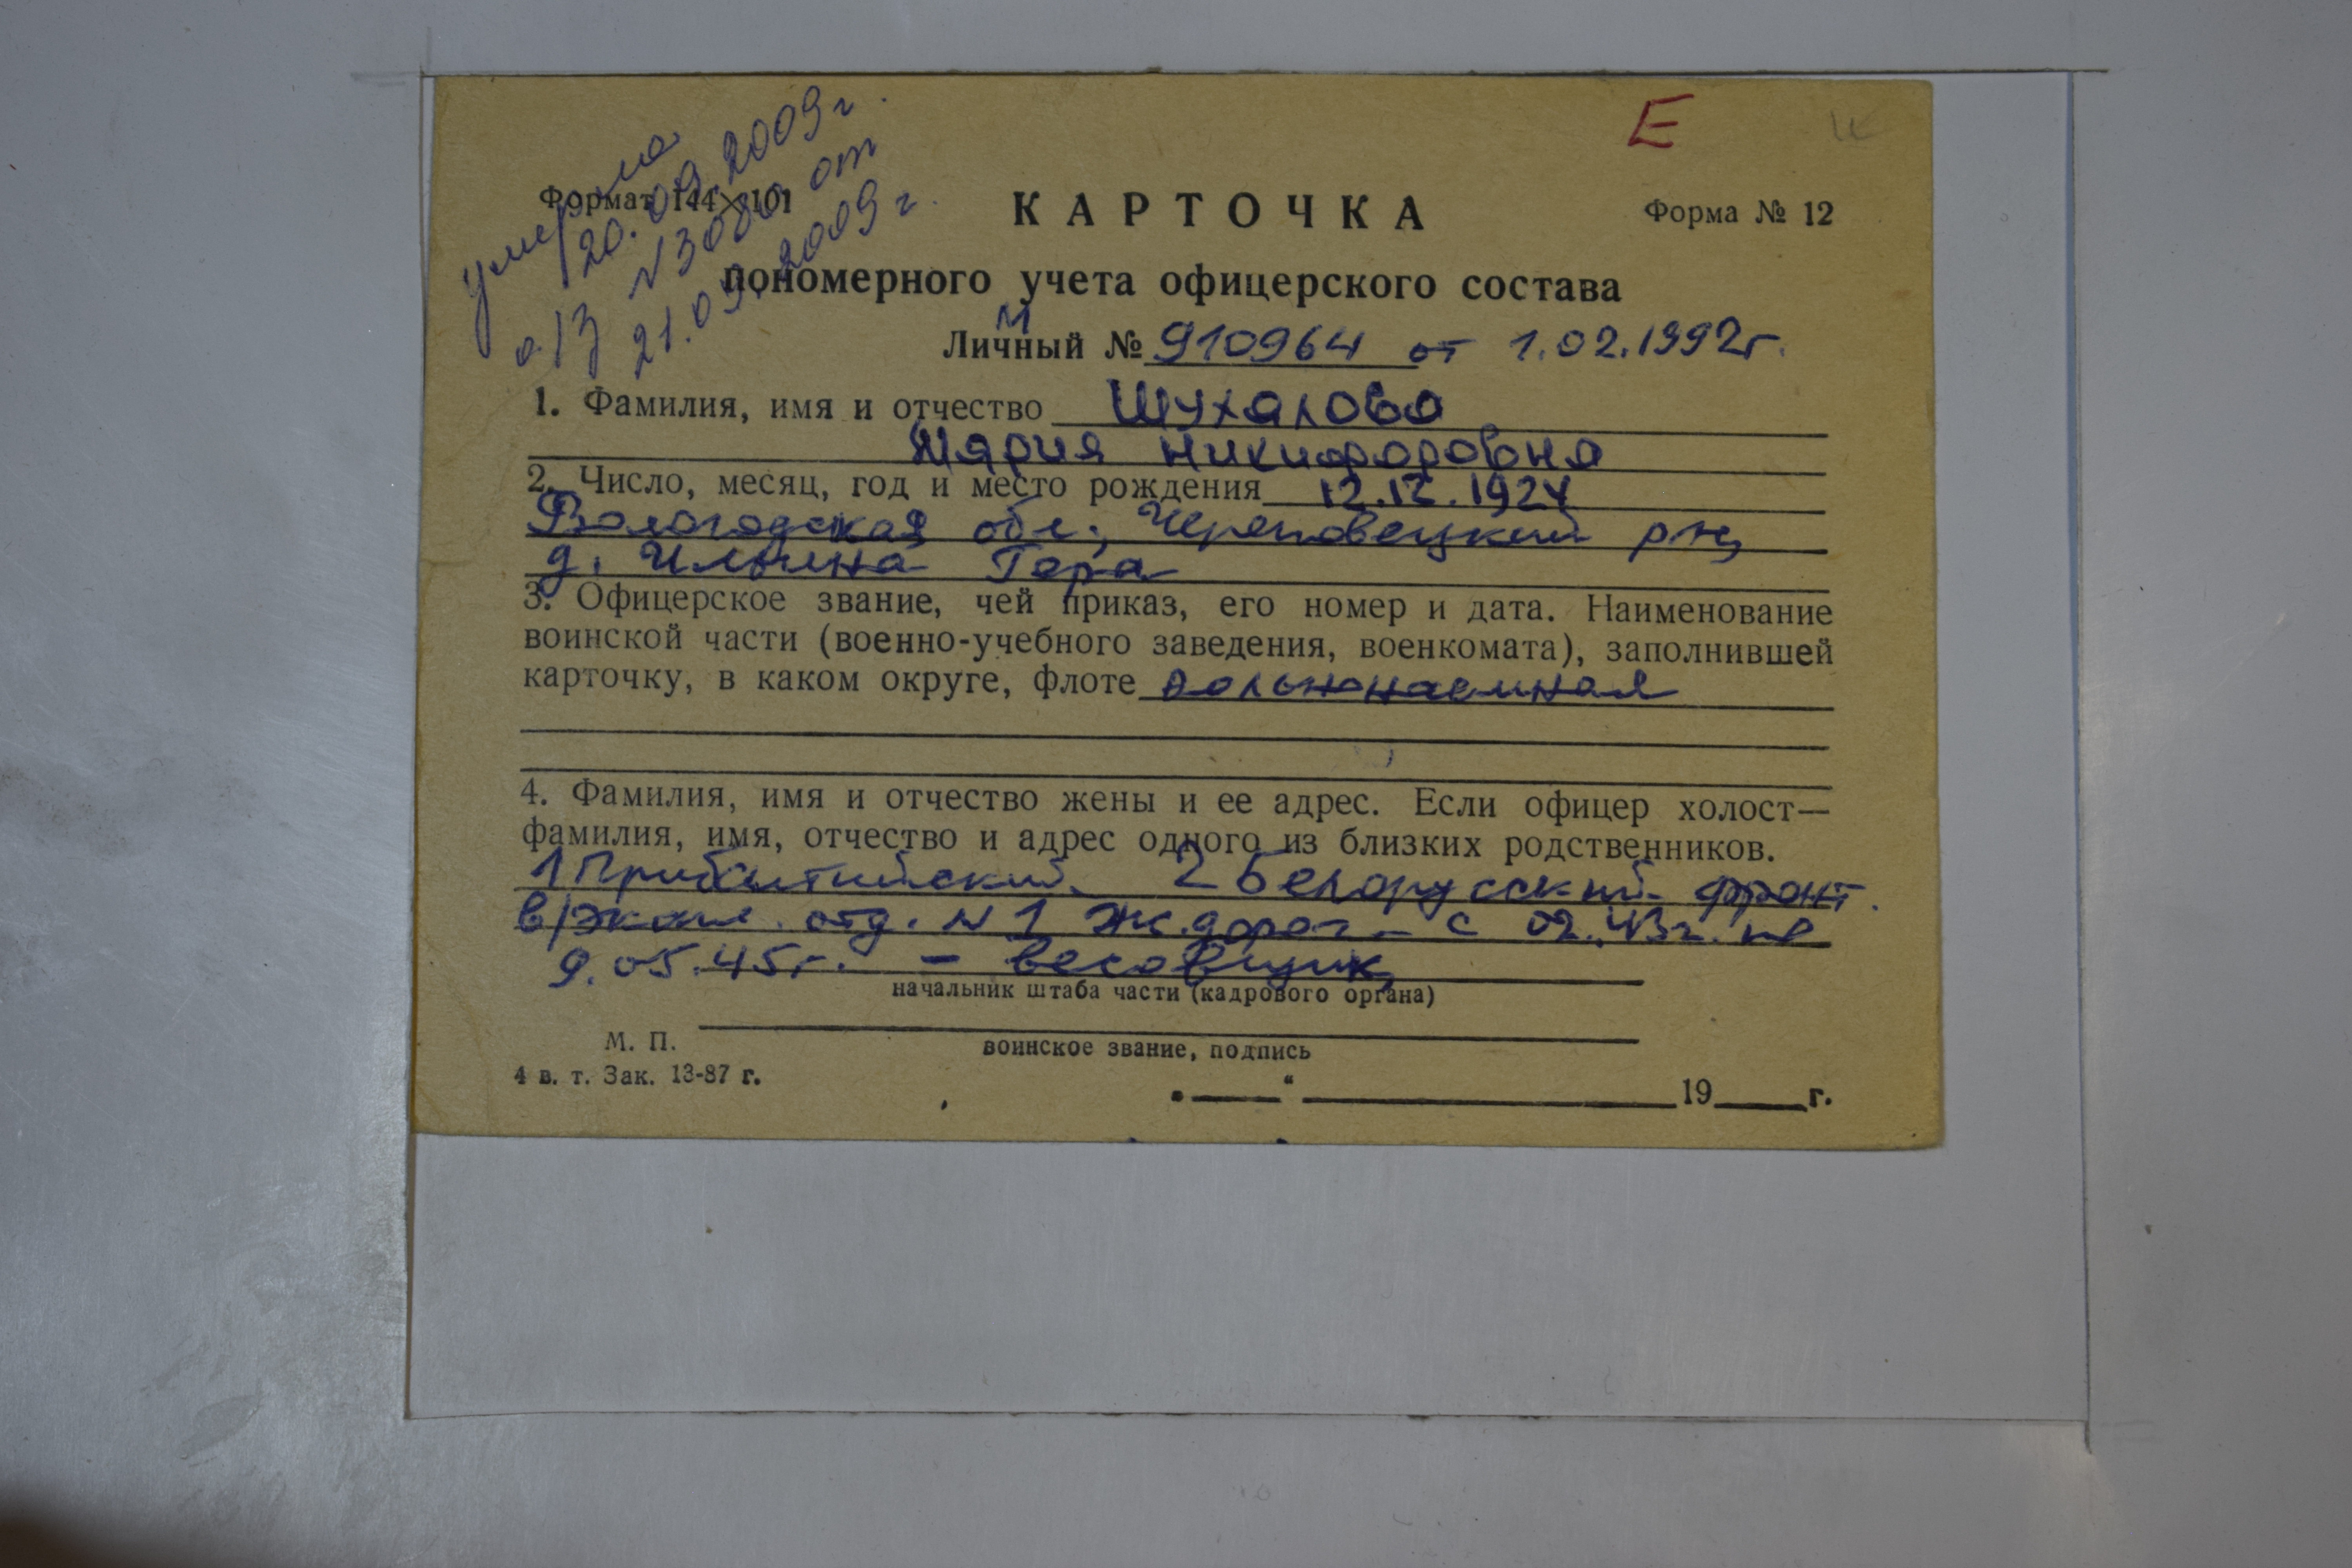 Е
умерла
20.09.2009г.
а/з №3080 от
21.09.2009г.
Формат 144×101
КАРТОЧКА
Форма № 12
пономерного учета офицерского состава
М
Личный № 910964 от 1.02.1992г.
1. Фамилия, имя и отчество Шухалова
Мария Никифоровна
2. Число, месяц, год и место рождения 12.12.1924
Вологодская обл., Череповецкий р-н,
д. Ильина Гора
3. Офицерское звание, чей приказ, его номер и дата. Наименование
воинской части (военно-учебного заведения, военкомата), заполнившей
карточку, в каком округе, флоте вольнонаемная
4. Фамилия, имя и отчество жены и ее адрес. Если офицер холост—
фамилия, имя, отчество и адрес одного из близких родственников.
1 Прибалтийский, 2 Белорусский фронт.
в/экспл. отд. № 1 ж.дорог – с 02.43г. по
9.05.45г. – весовщик,
начальник штаба части (кадрового органа)
М. П.
воинское звание, подпись
4 в. т. Зак. 13-87 г.
„ “ 19 г.